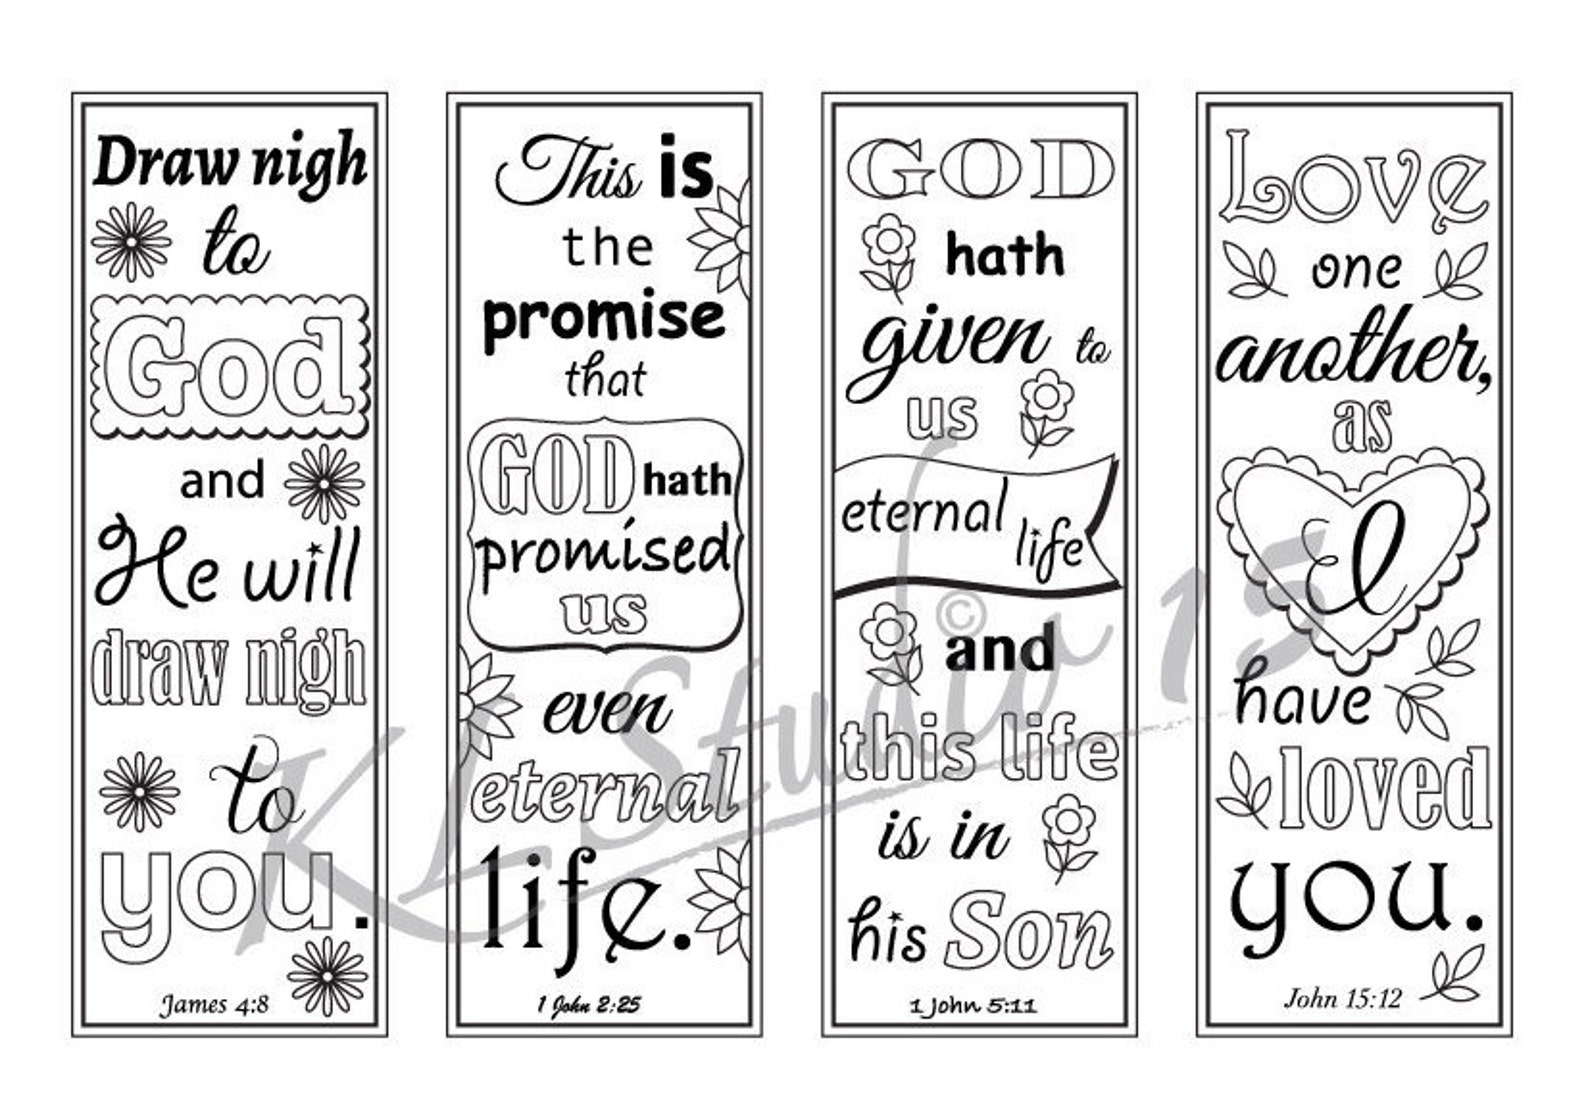 Draw nigh
to
God
and
He will
draw nigh
to
you.
James 4:8
This is
the
promise
that
GOD hath
promised
us
even
eternal
life.
1 John 2:25
GOD
hath
given to
us
eternal life
and
this life
is in
his Son
1 John 5:11
Love
one
another,
as
I
have
loved
you.
John 15:12
KL Studio 15
©